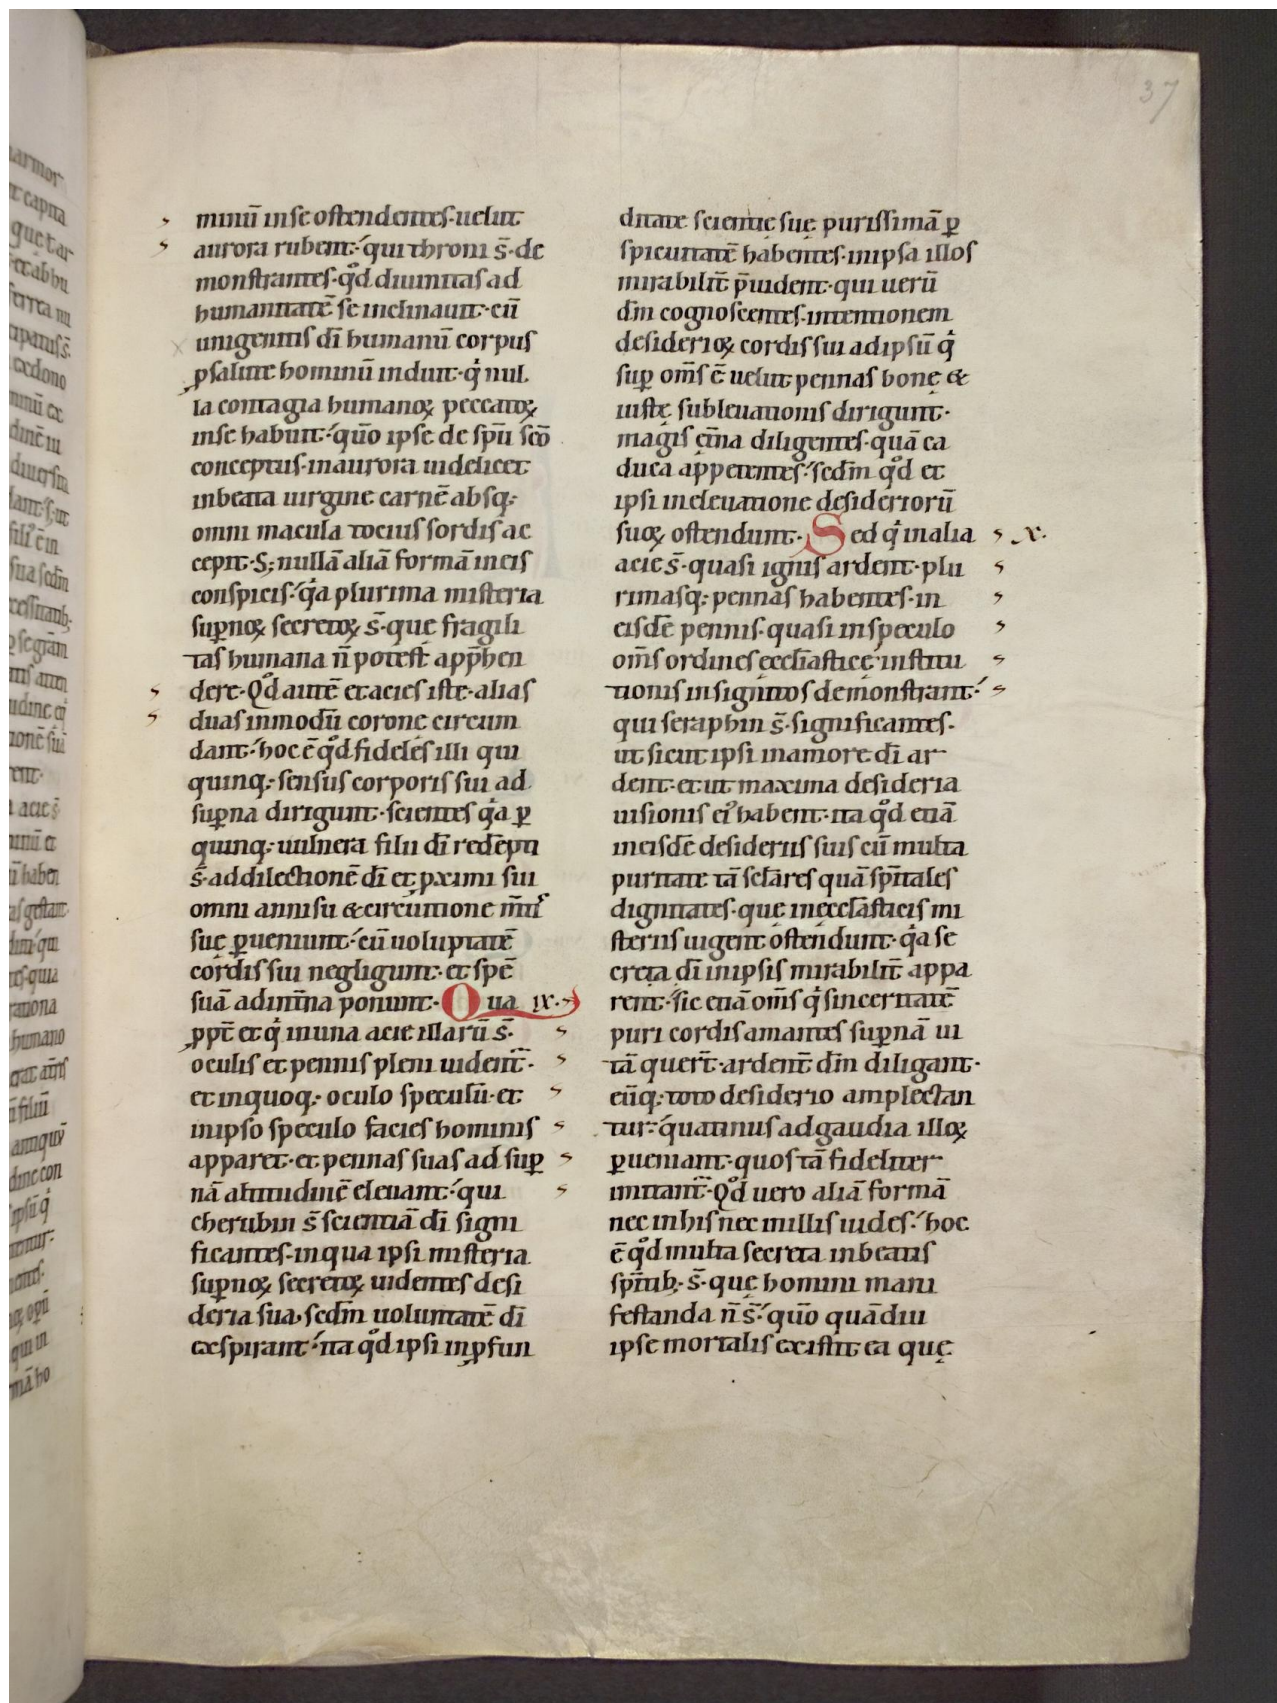 37
minū in se ostendentes· uelut
aurora rubent·́ qui throni s̄· de
monstrantes· qd̊ diuinitas ad
humanitatē se inclinauit· cū
unigenitus dī humanū corpus
p salute hominū induit· qͥ nul
la contagia humanoꝝ peccatoꝝ
in se habuit·́ quō ipse de spū scō
conceptus· in aurora uidelicet
in beata uirgine carnē absq;
omni macula tocius sordis ac
cepit· S; nullā aliā formā in eis
conspicis·́ qͣa plurima misteria
suꝑnoꝝ secretoꝝ s̄· que fragili
tas humana n̄ potest app̄hen
dere· Qd̊ autē et acies iste· alias
duas in modū corone circum
dant·́ hoc ē qd̊ fideles illi qui
quinq; sensus corporis sui ad
suꝑna dirigunt· scientes qͣa ꝑ
quinq; uulnera filii dī redēpti
s̄· ad dilectionē dī et pximi sui
omni annisu & circūitione m̄tis
suę ꝑueniunt·́ cū uoluptatē
cordis sui negligunt· et spē
suā ad int̄na ponunt· Qua ıx·
ppt̄ et qͥ in una acie illarū s̄·
oculis et pennis pleni uident̄·
et in quoq; oculo speculū· et
in ipso speculo facies hominis
apparet· et pennas suas ad suꝑ
nā altitudinē eleuant·́ qui
cherubin s̄ scientiā dī signi
ficantes· in qua ipsi misteria
suꝑnoꝝ secretoꝝ uidentes desi
deria sua· scdm̄ uoluntatē dī
exspirant·́ ita qd̊ ipsi in pfun
ditate scientię suę purissimā ꝑ
spicuitatē habentes· in ipsa illos
mirabilit̄ p̄uident· qui uerū
dm̄ cognoscentes· intentionem
desiderioꝝ cordis sui ad ipsū qͥ
suꝑ om̄s ē uelut pennas bonę &
iustę subleuationis dirigunt·
magis et̄na diligentes· quā ca
duca appetentes·́ scdm̄ qd̊ et
ipsi in eleuatione desideriorū
suoꝝ ostendunt· Sed qͥ in alia x·
acie s̄· quasi ignis ardent· plu
rimasq; pennas habentes· in
eisdē pennis· quasi in speculo
om̄s ordines eccl̄iasticę institu
tionis insignitos demonstrant·́
qui seraphin s̄· significantes·
ut sicut ipsi in amore dī ar
dent· et ut maxima desideria
uisionis eiꝰ habent· ita qd̊ etiā
in eisdē desideriis suis cū multa
puritate tā sclāres quā spīt̄ales
dignitates· que in eccl̄asticis mi
steriis uigent ostendunt· qͣa se
creta dī in ipsis mirabilit̄ appa
rent· sic etiā om̄s qͥ sinceritatē
puri cordis amantes suꝑnā ui
tā quer̄t· ardent̄ dm̄ diligant·
eūq; toto desiderio amplectan
tur·́ quatinus ad gaudia illoꝝ
ꝑueniant· quos tā fideliter
imitant̄· Qd̊ uero aliā formā
nec in his nec in illis uides·́ hoc
ē qd̊ multa secreta in beatis
spīt̄ib; s̄· quę homini mani
festanda n̄ s̄·́ quō quādiu
ipse mortalis existit ea quę